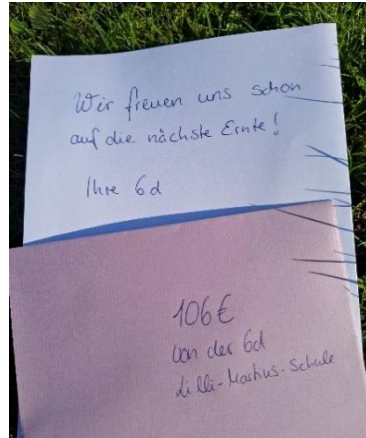 Wir freuen uns schon
auf die nächste Ernte!
Ihre 6d
106€
von der 6d
Lilli-Martius-Schule